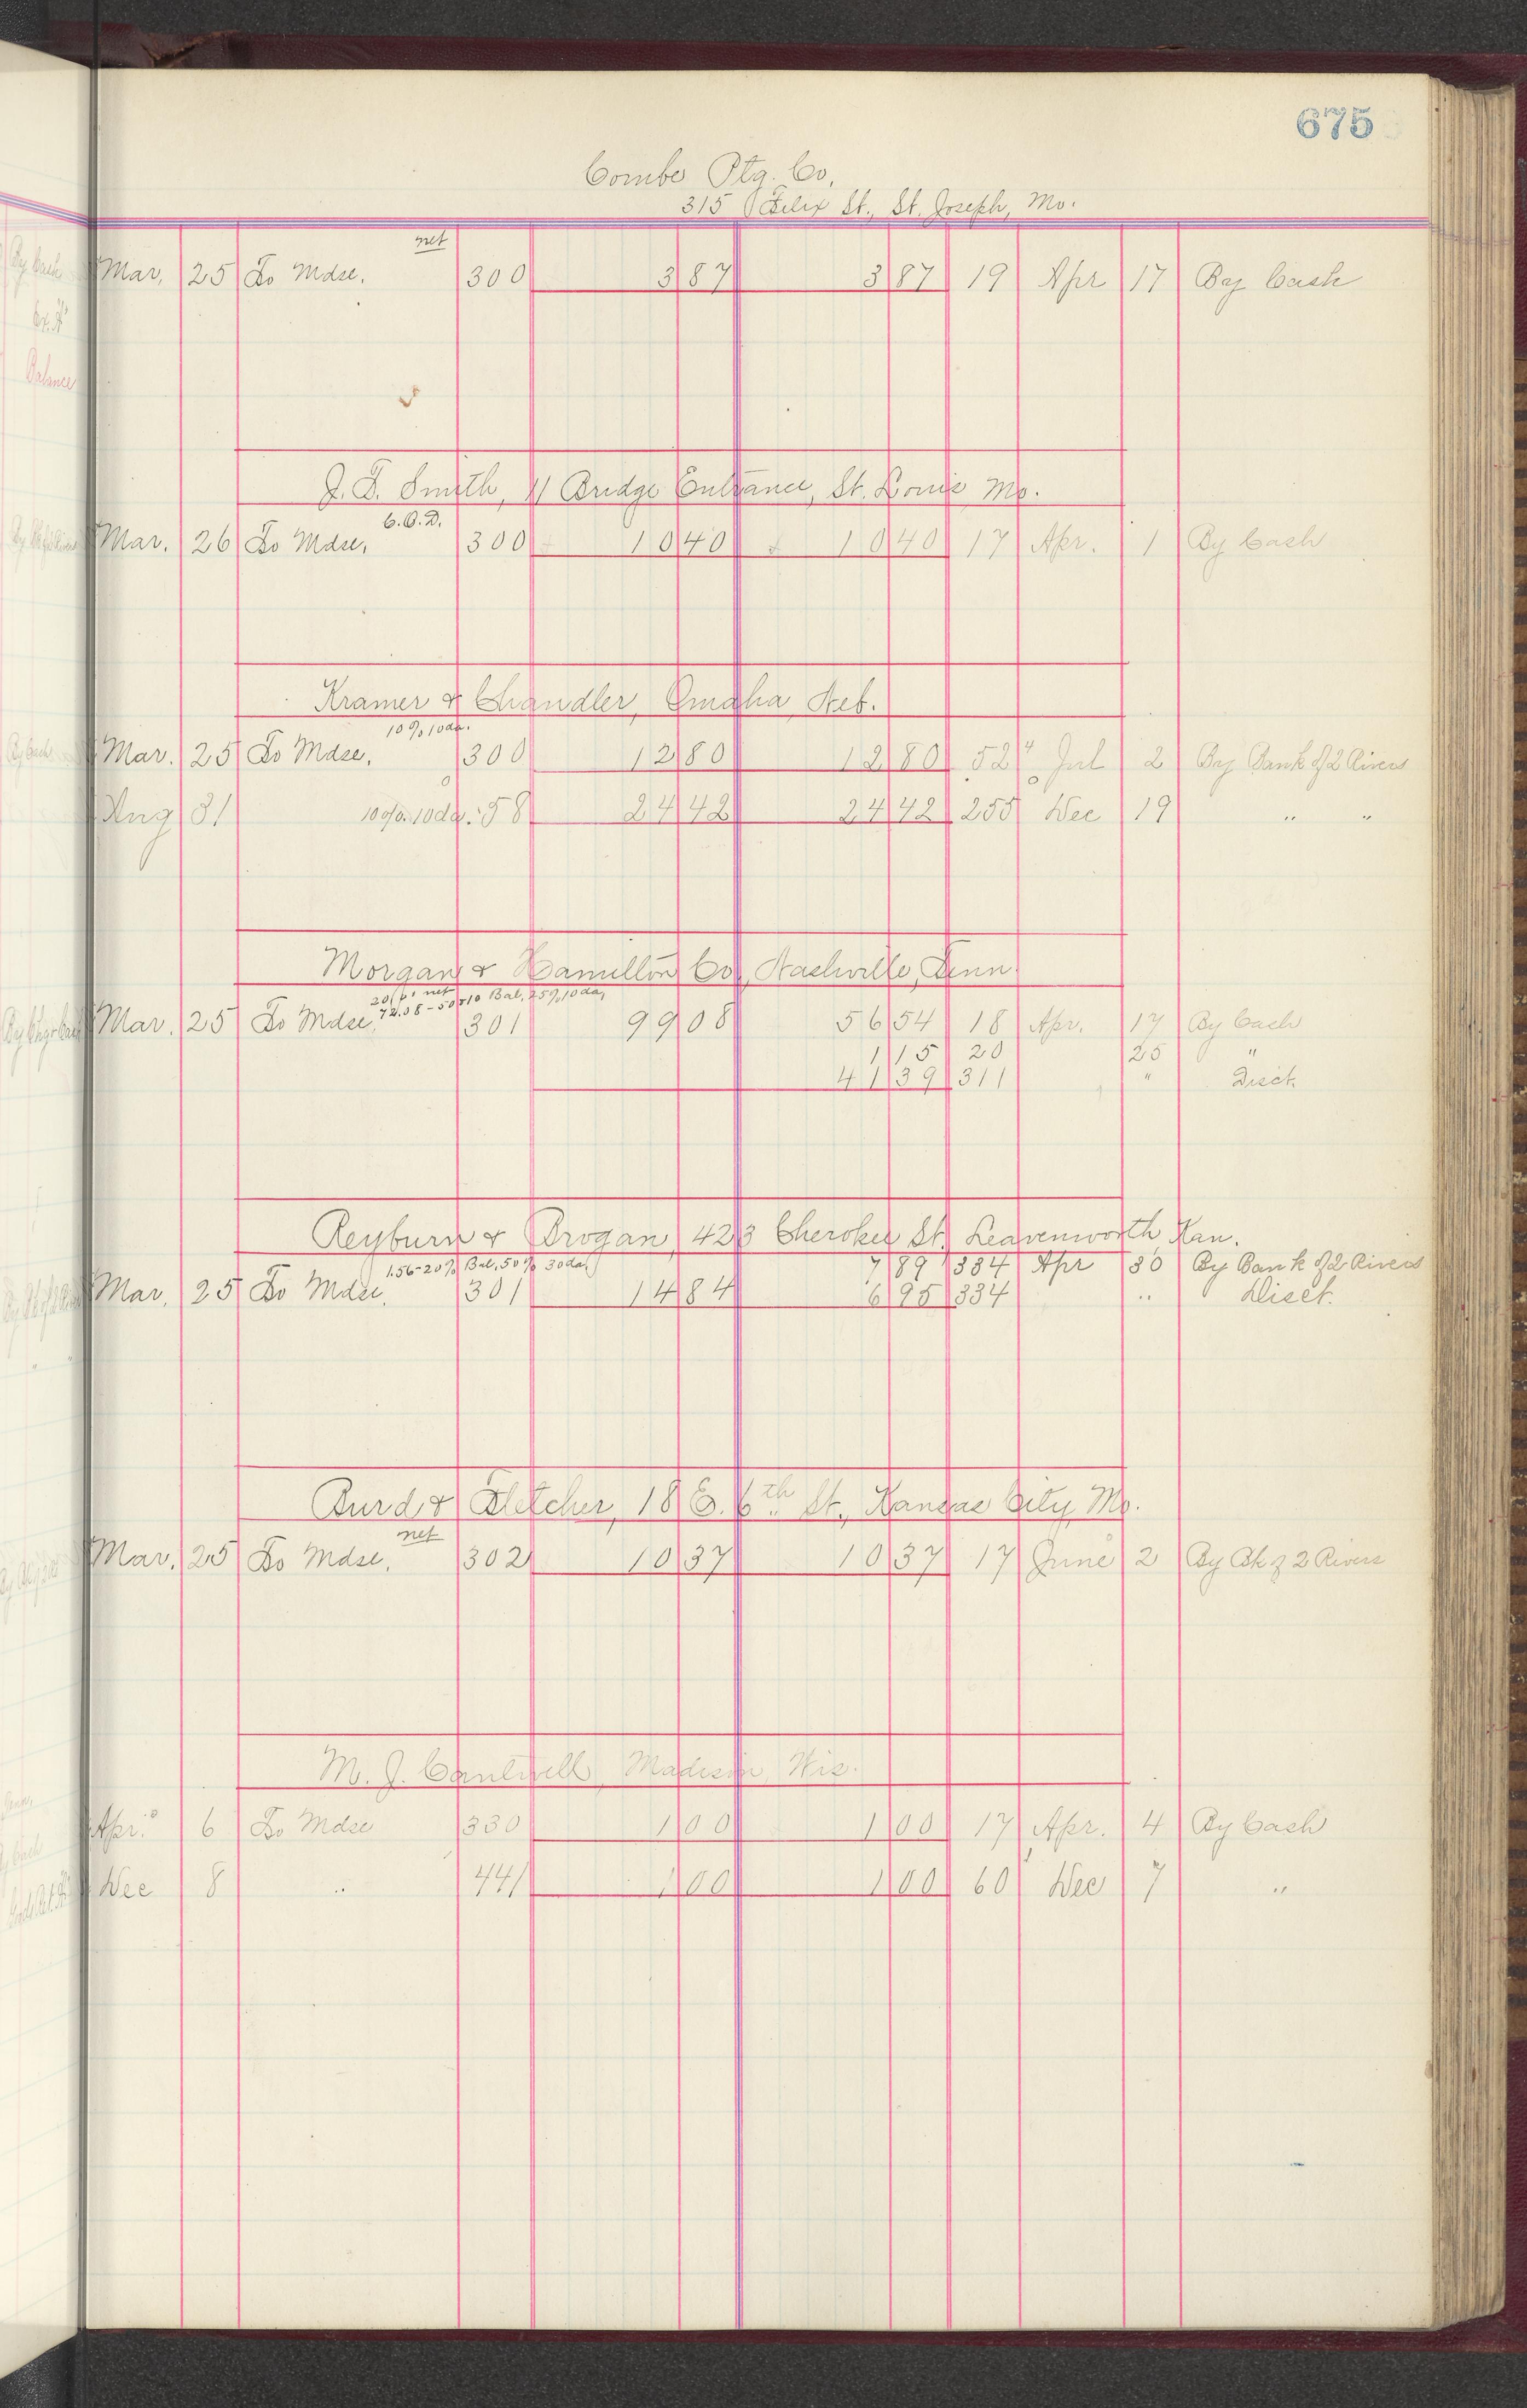 675
Combe Ptg. Co.
315 Felix St., St. Joseph, Mo.
net
Mar. 25 To Mdse. 300 3 87 3 87 19 Apr 17 By Cash
J. F. Smith, 11 Bridge Entrance, St. Louis Mo.
C.O.D.
Mar. 26 To Mdse. 300 10 40 10 40 17 Apr. 1 By Cash
Kramer & Chandler, Omaha Neb.
10% 10da.
Mar. 25 To Mdse. 300 12 80 12 80 52 Jul 2 By Bank of 2 Rivers
Aug 31 10%. 10da. 58 24 42 24 42 255 Dec 19 " "
Morgan & Hamilton Co., Nashville, Tenn.
net
72.08-50+10 Bal, 25% 10da,
Mar. 25 To Mdse. 301 99 08 56 54 18 Apr. 17 By Cash
1 15 20 25 "
41 39 311 " Disct.
Reyburn & Brogan, 423 Cherokee St. Leavenworth Kan.
1.56-20% Bal, 50% 30da. 7 89 334 Apr 30 By Bank of 2 Rivers
Mar. 25 To Mdse. 301 14 84 6 95 334 " Disct.
Burd & Fletcher, 18 E. 6th St., Kansas City, Mo.
net
Mar. 25 To Mdse. 302 10 37 10 37 17 June 2 By Bk of 2 Rivers
M. J. Cantwell, Madison, Wis.
Apr. 6 To Mdse 330 1 00 1 00 17 Apr. 4 By Cash
Dec 8 " 441 1 00 1 00 60 Dec 7 "
By Cash
Balance